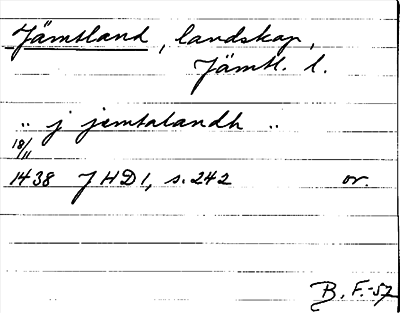 Jämtland, landskap,
Jämtl. l.
.. j jemtalandh ..
18/11
1438 JHD 1, s. 242 or.
B. F.-57